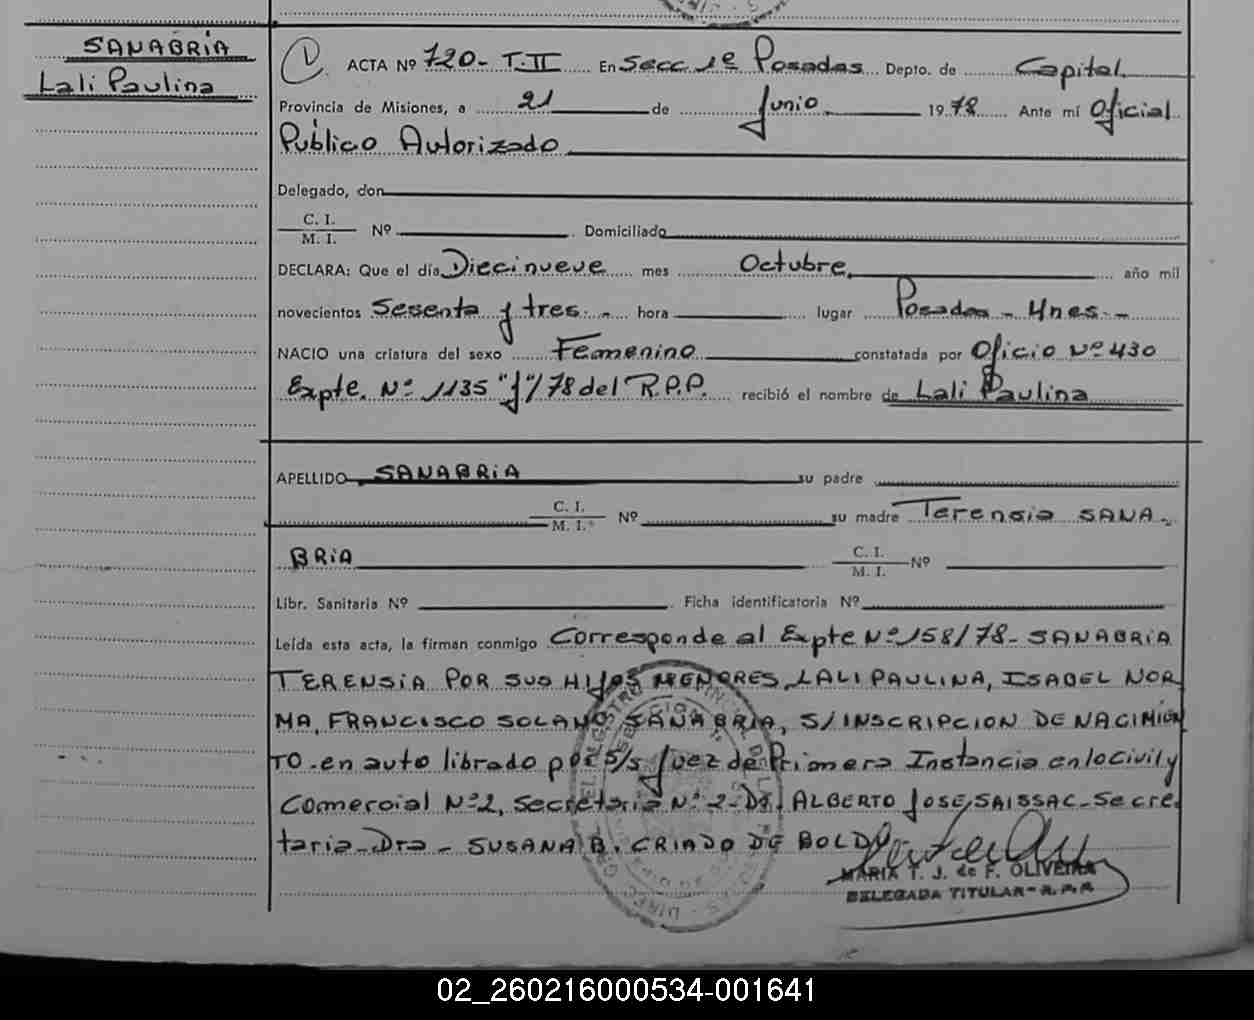 SANABRIA
Lali Paulina
ACTA Nº 720- T.II En Secc 1º Posadas Depto. de Capital.
Provincia de Misiones, a 21 de Junio 1978 Ante mí Oficial
Público Autorizado
Delegado, don
C. I.
M. I. Nº Domiciliado
DECLARA: Que el día Diecinueve mes Octubre año mil
novecientos Sesenta y tres.- hora lugar Posadas - Mnes.-
NACIO una criatura del sexo Femenino constatada por Oficio Nº 430
Expte. Nº 1135 "J"/78 del R.P.P. recibió el nombre de Lali Paulina
APELLIDO SANABRIA su padre
C. I.
M. I. Nº su madre Terensia SANA-
BRIA C. I.
M. I. Nº
Libr. Sanitaria Nº Ficha identificatoria Nº
Leída esta acta, la firman conmigo Corresponde al Expte Nº 158/78- SANABRIA
TERENSIA POR SUS HIJOS MENORES, LALI PAULINA, ISABEL NOR
MA, FRANCISCO SOLANO SANABRIA, S/INSCRIPCION DE NACIMIEN
TO-en auto librado por S/S Juez de Primera Instancia en lo Civil y
Comercial Nº 2, Secretaria Nº 2-Dr. ALBERTO JOSE SAISSAC-Secre
taria-Dra- SUSANA B. CRIADO DE BOLDU
MARIA T. J. de F. OLIVEIRA
DELEGADA TITULAR - R.P.P.
02_260216000534-001641